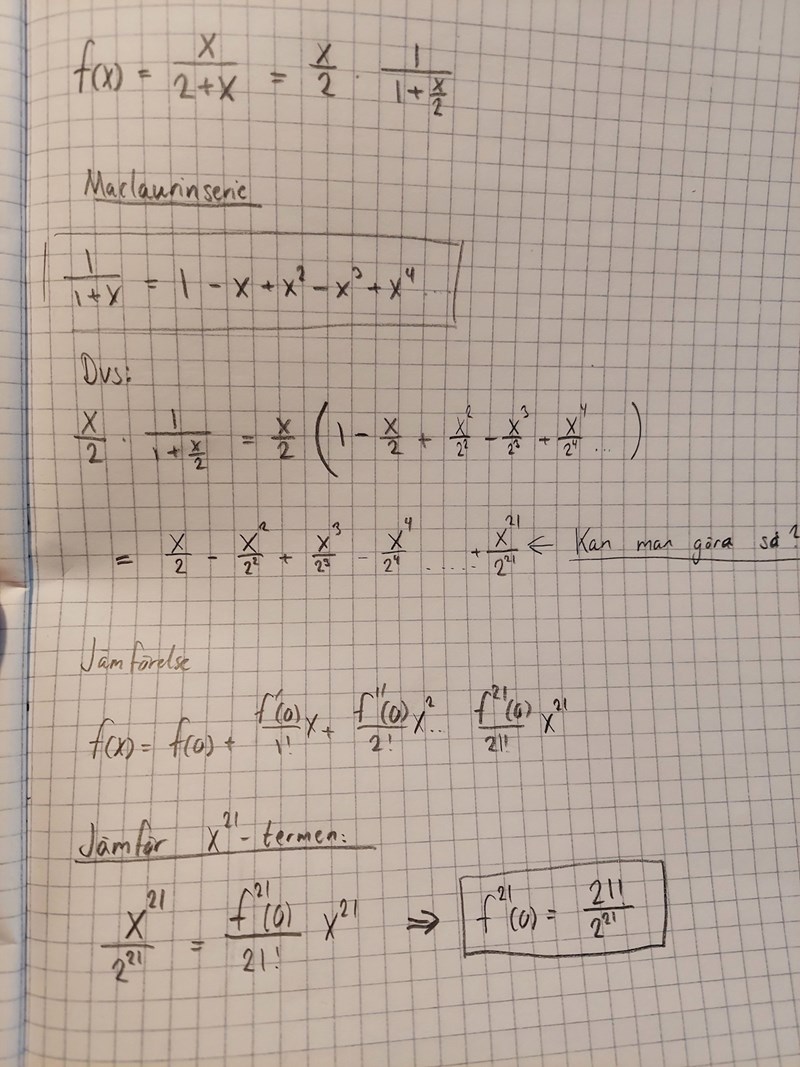 f(x) = x/(2+x) = x/2 · 1/(1+x/2)
Maclaurinserie
1/(1+x) = 1 - x + x² - x³ + x⁴ ...
Dvs:
x/2 · 1/(1+x/2) = x/2 (1 - x/2 + x²/2² - x³/2³ + x⁴/2⁴ ...)
= x/2 - x²/2² + x³/2³ - x⁴/2⁴ ..... + x²¹/2²¹ ← Kan man göra så?
Jämförelse
f(x) = f(0) + f'(0)/1! x + f''(0)/2! x² ... f²¹(0)/21! x²¹
Jämför x²¹-termen:
x²¹/2²¹ = f²¹(0)/21! x²¹ ⇒ f²¹(0) = 21!/2²¹